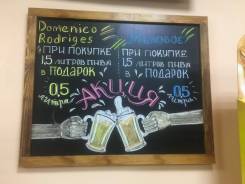 Domenico
Rodriges
ПРИ ПОКУПКЕ
1,5 ЛИТРОВ ПИВА
В ПОДАРОК
0,5
литра
ПРИ ПОКУПКЕ
1,5 ЛИТРОВ ПИВА
В ПОДАРОК
0,5
литра
АКЦИЯ